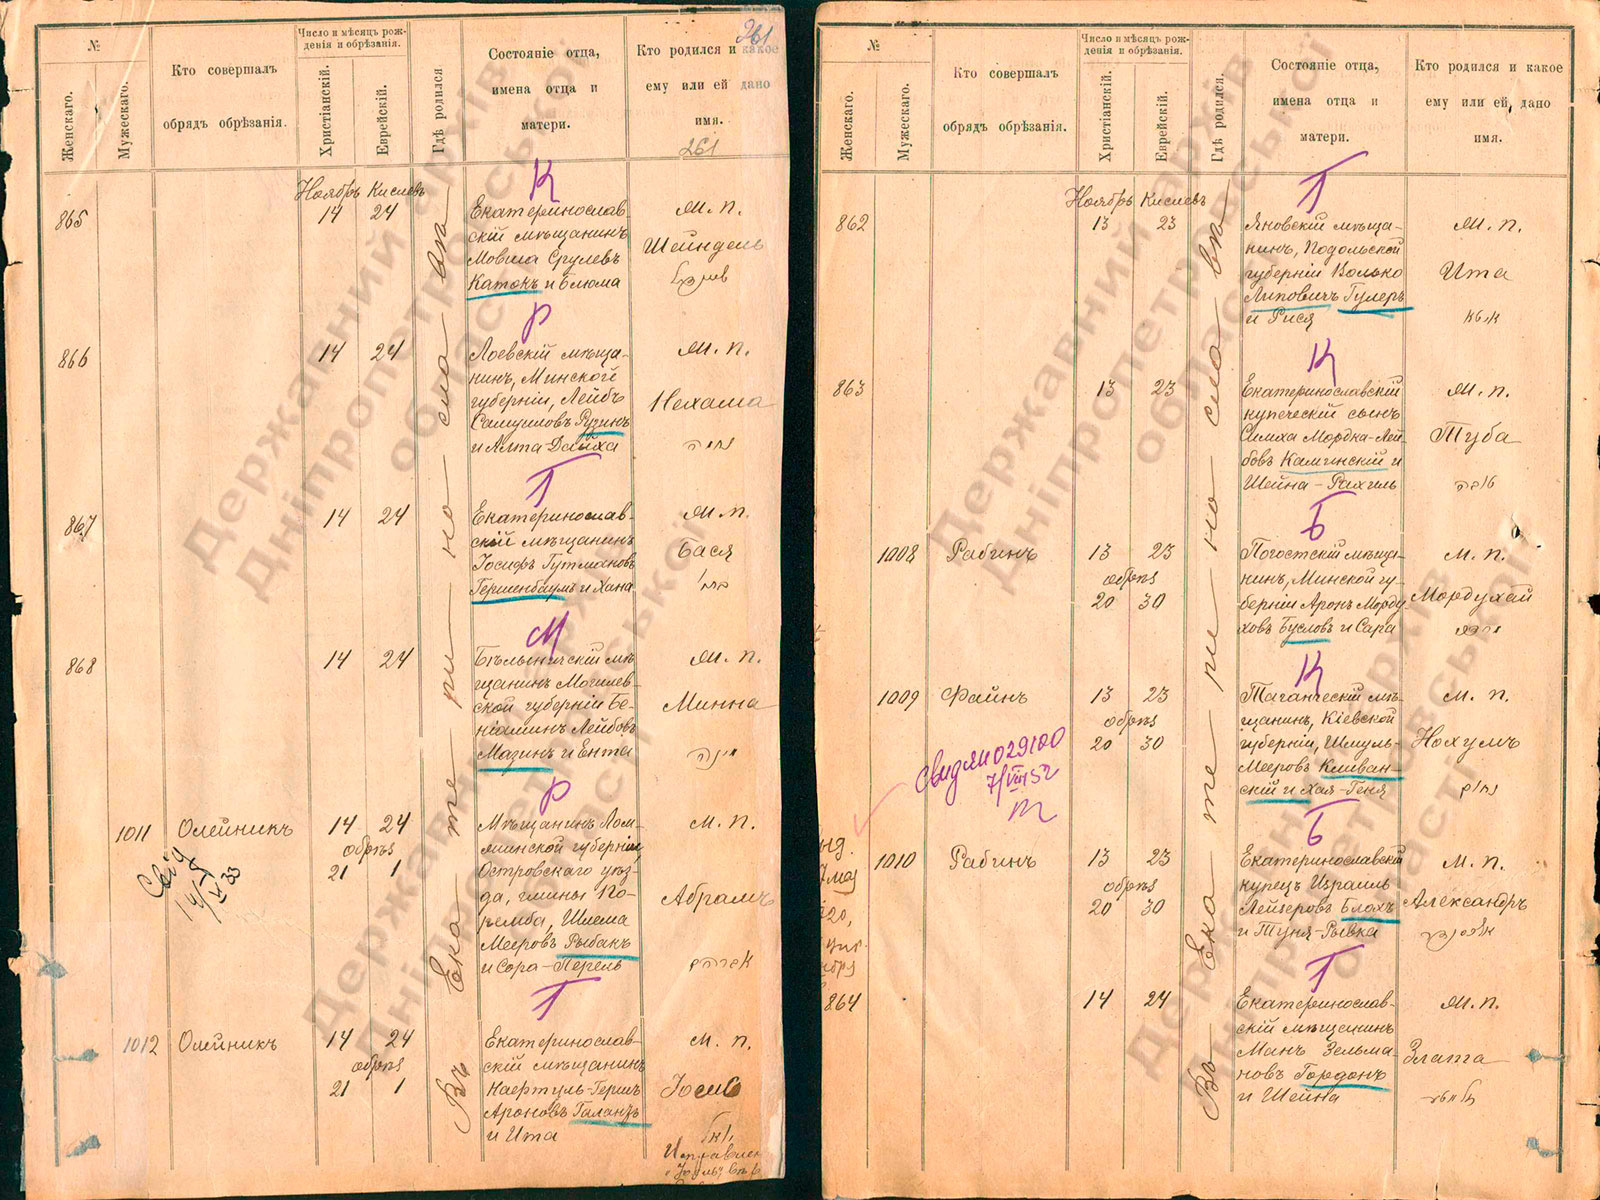 261
№
Женскаго.
Мужескаго.
Кто совершалъ
обрядъ обрѣзанія.
Число и мѣсяцъ рож-
денія и обрѣзанія.
Христіанскій.
Еврейскій.
Гдѣ родился
Состояніе отца,
имена отца и
матери.
Кто родился и какое
ему или ей дано
имя.
261
Ноябрь Кислевъ
К
865
14 24
Екатеринослав-
скій мѣщанинъ
Мовша Срулевъ
Катокъ и Блюма
М. п.
Шейндель
Р
866
14 24
Лоевскій мѣща-
нинъ, Минской
губерніи, Лейбъ
Самуиловъ Рузинъ
и Алта Двойха
М. п.
Нехама
נחמה
Г
867
14 24
Екатеринослав-
скій мѣщанинъ
Іосифъ Гутмановъ
Гершенбаумъ и Хана
М. п.
Бася
М
868
14 24
Бѣлыничскій мѣ-
щанинъ Могилев-
ской губерніи Бе-
ніаминъ Лейбовъ
Мазинъ и Ента
М. п.
Минна
מינה
Р
1011 Олейникъ
14 24
обрѣз
21 1
Мѣщанинъ Лом-
жинской губерніи,
Островскаго уѣз-
да, гмины По-
ремба, Шлема
Мееровъ Рыбакъ
и Сора-Перель
М. п.
Абрамъ
אברהם
Г
1012 Олейникъ
14 24
обрѣз
21 1
Екатеринослав-
скій мѣщанинъ
Нафтуль-Гершъ
Ароновъ Галандъ
и Ита
М. п.
Іосифъ
Въ Екатеринославѣ
№
Женскаго.
Мужескаго.
Кто совершалъ
обрядъ обрѣзанія.
Число и мѣсяцъ рож-
денія и обрѣзанія.
Христіанскій.
Еврейскій.
Гдѣ родился.
Состояніе отца,
имена отца и
матери.
Кто родился и какое
ему или ей дано
имя.
Ноябрь Кислевъ
Г
862
13 23
Яновскій мѣща-
нинъ, Подольской
губерніи Волько
Липовичъ Гулеръ
и Рися
М. п.
Ита
איטא
К
863
13 23
Екатеринославскій
купеческій сынъ
Симха Мордка-Лей-
бовъ Каминскій и
Шейна-Рахиль
М. п.
Туба
טובה
Б
1008 Рабинъ
13 23
обрѣз
20 30
Погостскій мѣща-
нинъ, Минской гу-
берніи Аронъ Морду
ховъ Бусловъ и Сара
М. п.
Мордухай
מרדכי
К
1009 Файнъ
13 23
обрѣз
20 30
Таганческій мѣ-
щанинъ, Кіевской
губерніи, Шмуль-
Мееровъ Кливан-
скій и Хая-Геня
М. п.
Нохумъ
נחום
Б
1010 Рабинъ
13 23
обрѣз
20 30
Екатеринославскій
купецъ Израиль
Лейзеровъ Блохъ
и Туня-Рывка
М. п.
Александръ
Г
864
14 24
Екатеринослав-
скій мѣщанинъ
Манъ Зельма-
новъ Гордонъ
и Шейна
М. п.
Злата
Въ Екатеринославѣ
Державний архів
Дніпропетровської
області